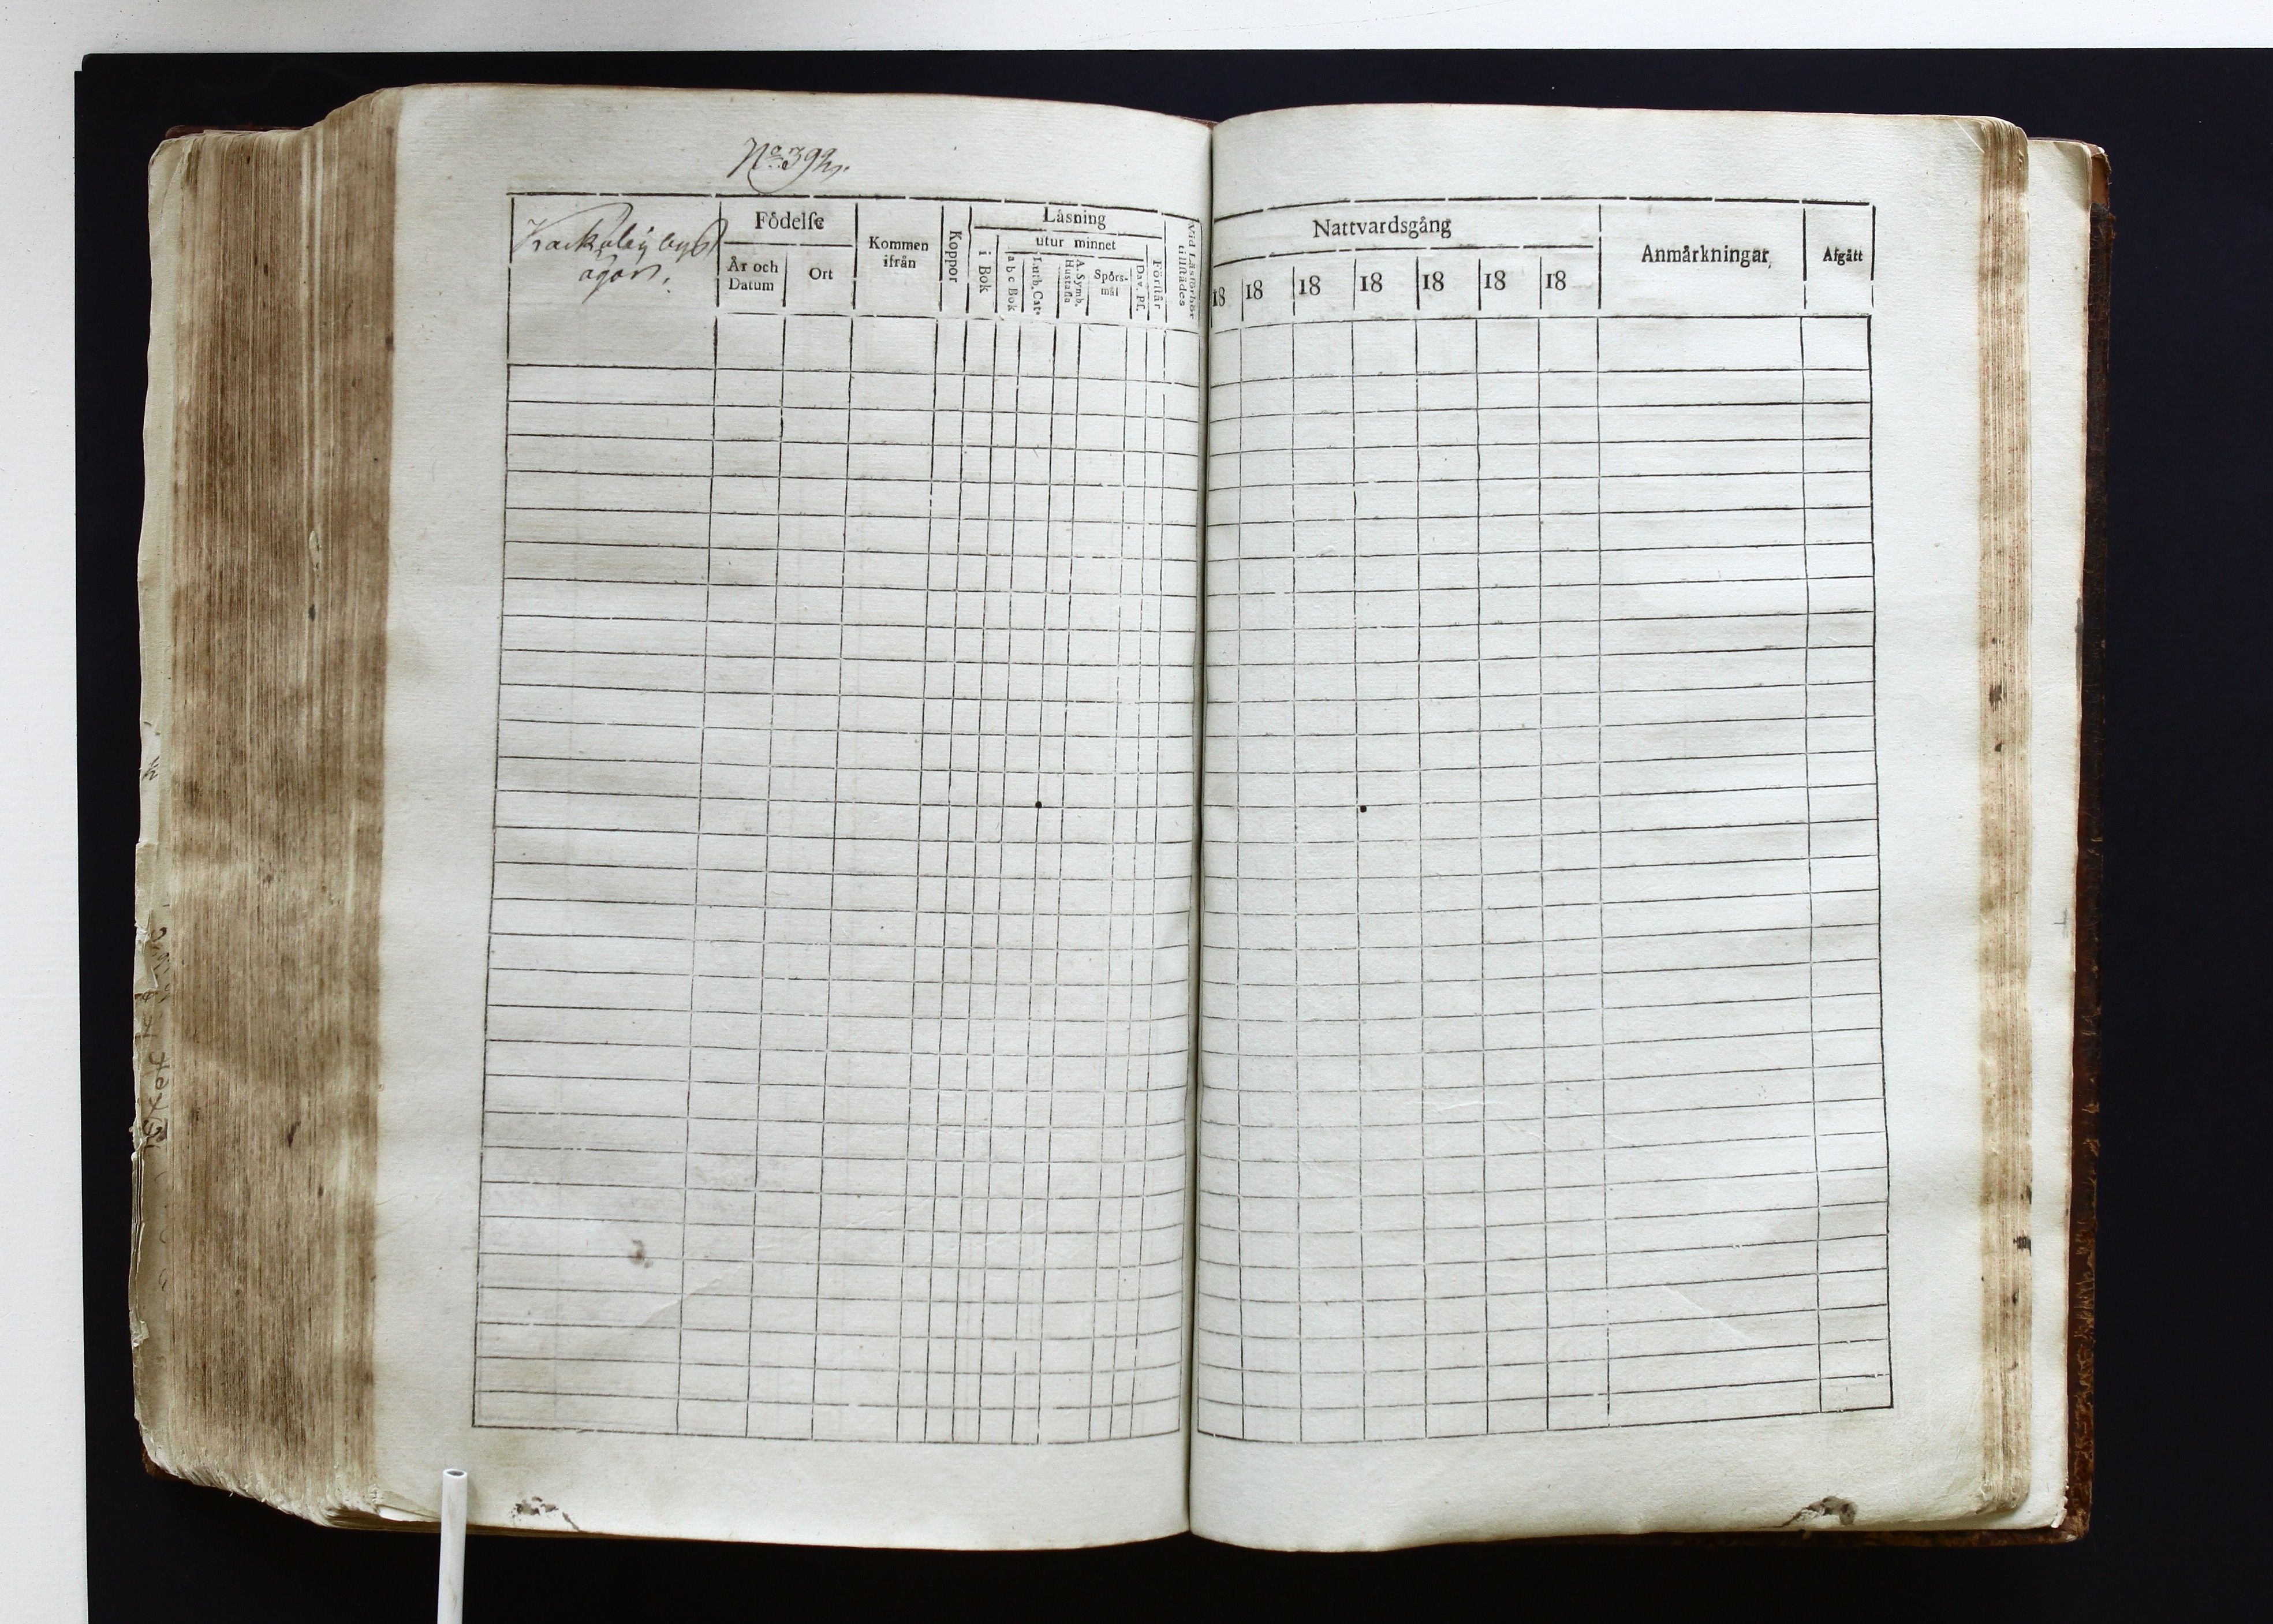 No 392.
Födelse
Kommen
ifrån
Koppor
Läsning
utur minnet
År och
Datum
Ort
i Bok
a b c Bok
Luth. Cat.
A. Symb.
Hustafla
Spörs-
mål
Dav. Ps.
Förstår
Vid Läsförhör
tillstädes
Nattvardsgång
18 18 18 18 18 18 18
Anmärkningar
Afgått